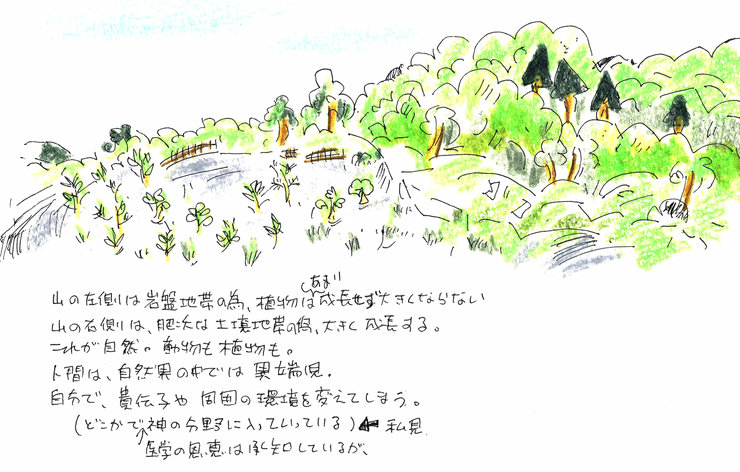 山の左側は岩盤地帯の為、植物はあまり成長せず大きくならない
山の右側は、肥沃な土壌地帯の為、大きく成長する。
これが自然。動物も植物も。
人間は、自然界の中では異端児。
自分で、遺伝子や周囲の環境を変えてしまう。
(どこかで神の分野に入っていっている)← 私見
医学の恩恵は承知しているが、